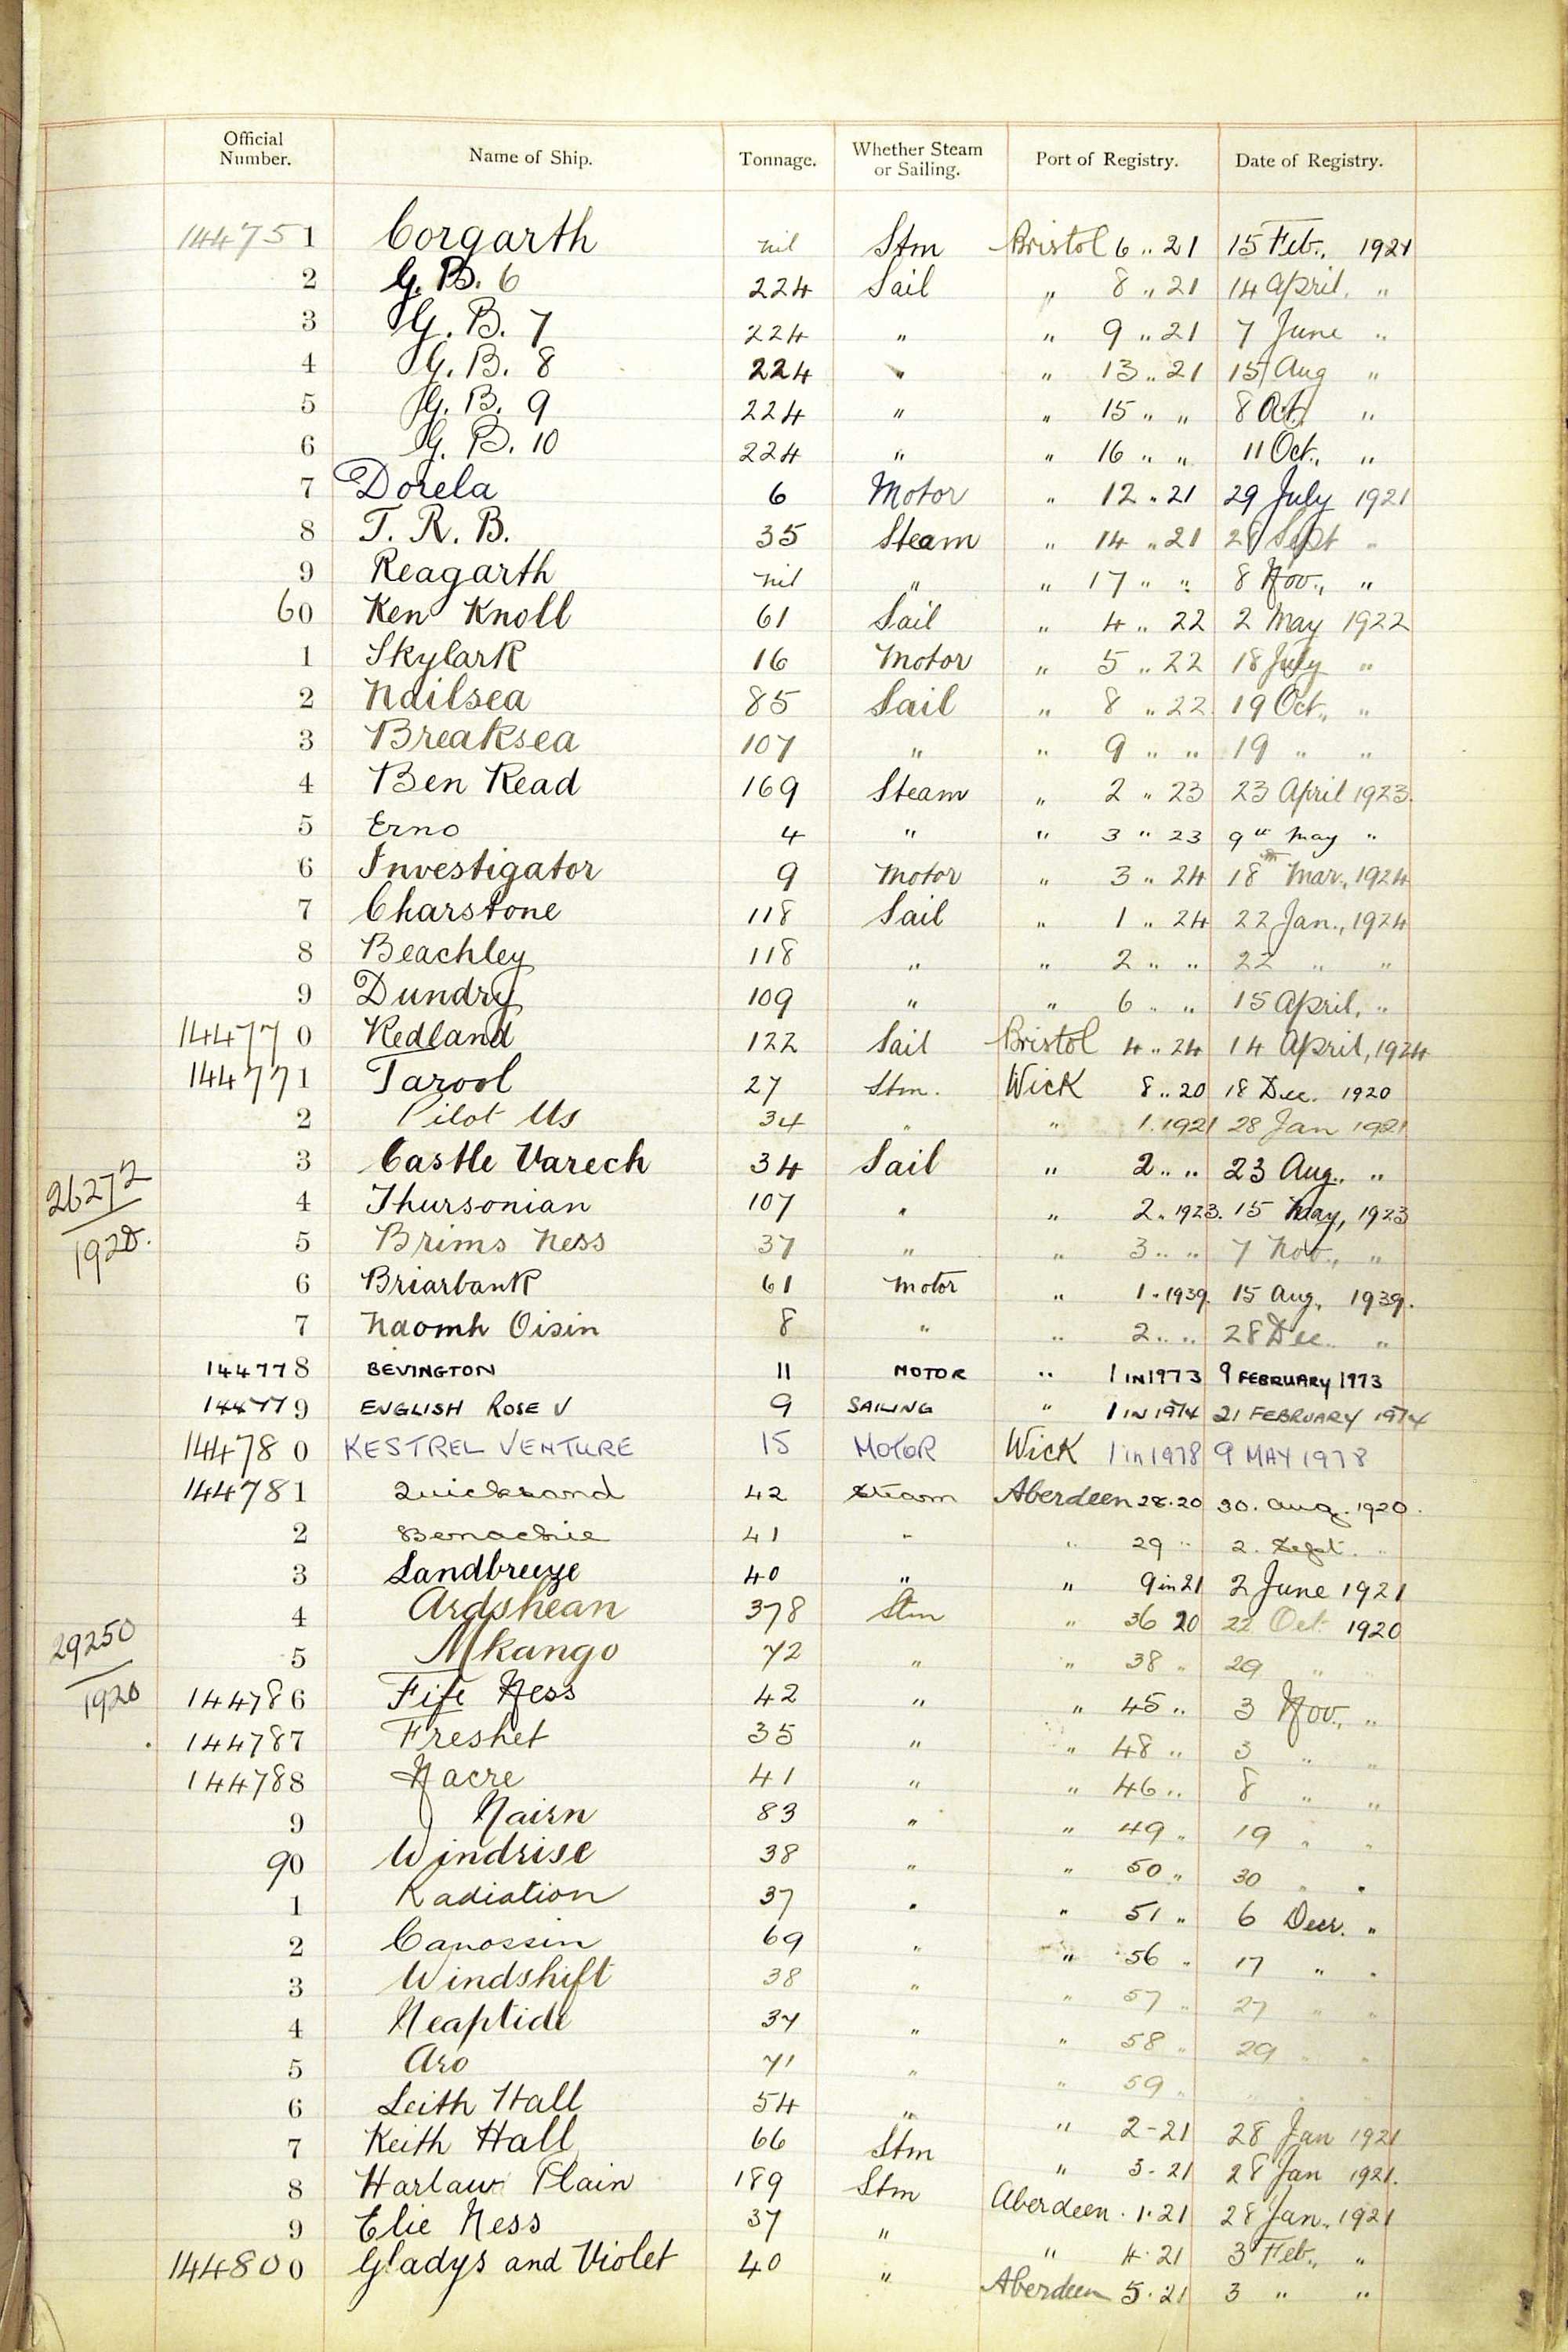 Official Number. Name of Ship. Tonnage. Whether Steam or Sailing. Port of Registry. Date of Registry.
144751 Corgarth nil Stm Bristol 6 " 21 15 Feb., 1921
2 G. B. 6 224 Sail " 8 " 21 14 April, "
3 G. B. 7 224 " " 9 " 21 7 June "
4 G. B. 8 224 " " 13 " 21 15 Aug "
5 G. B. 9 224 " " 15 " " 8 Oct. "
6 G. B. 10 224 " " 16 " " 11 Oct., "
7 Dorela 6 Motor " 12 " 21 29 July 1921
8 T. R. B. 35 Steam " 14 " 21 28 Sept "
9 Reagarth nil " " 17 " " 8 Nov., "
60 Ken Knoll 61 Sail " 4 " 22 2 May 1922
1 Skylark 16 Motor " 5 " 22 18 July "
2 Nailsea 85 Sail " 8 " 22 19 Oct., "
3 Breaksea 107 " " 9 " " 19 " "
4 Ben Read 169 Steam " 2 " 23 23 April 1923.
5 Erno 4 " " 3 " 23 9th May "
6 Investigator 9 Motor " 3 " 24 18th Mar., 1924
7 Charstone 118 Sail " 1 " 24 22 Jan., 1924
8 Beachley 118 " " 2 " " 22 " "
9 Dundry 109 " " 6 " " 15 April, "
144770 Redland 122 Sail Bristol 4 " 24 14 April, 1924
144771 Tarool 27 Stm. Wick 8 " 20 18 Dec. 1920
2 Pilot Us 34 " " 1. 1921 28 Jan 1921
3 Castle Varech 34 Sail " 2 " " 23 Aug., "
26272
4 Thursonian 107 " " 2. 1923. 15 May, 1923
1920.
5 Brims Ness 37 " " 3 " " 7 Nov., "
6 Briarbank 61 Motor " 1. 1939. 15 Aug, 1939.
7 Naomh Oisin 8 " " 2 " " 28 Dec. "
144778 BEVINGTON 11 MOTOR " 1 IN 1973 9 FEBRUARY 1973
144779 ENGLISH ROSE V 9 SAILING " 1 IN 1974 21 FEBRUARY 1974
144780 KESTREL VENTURE 15 MOTOR Wick 1 in 1978 9 MAY 1978
144781 Quicksand 42 Steam Aberdeen 28.20 30. Aug. 1920.
2 Benachie 41 " " 29 " 2. Sept. "
3 Landbreeze 40 " " 9 in 21 2 June 1921
4 Ardshean 378 Stm " 36 20 22 Oct 1920
29250
5 Mkango 72 " " 38 " 29 " "
1920
144786 Fife Ness 42 " " 45 " 3 Nov., "
144787 Freshet 35 " " 48 " 3 " "
144788 Nacre 41 " " 46 " 8 " "
9 Nairn 83 " " 49 " 19 " "
90 Windrise 38 " " 50 " 30 " "
1 Radiation 37 " " 51 " 6 Decr. "
2 69 " " 56 " 17 " "
3 Windshift 38 " " 57 " 27 " "
4 Neaptide 37 " " 58 " 29 " "
5 Aro 71 " " 59 " " " "
6 Leith Hall 54 " " 2-21 28 Jan 1921
7 Keith Hall 66 Stm " 3.21 28 Jan 1921.
8 Harlaw Plain 189 Stm Aberdeen. 1.21 28 Jan. 1921
9 Elie Ness 37 " " 4.21 3 Feb., "
144800 Gladys and Violet 40 " Aberdeen 5.21 3 " "